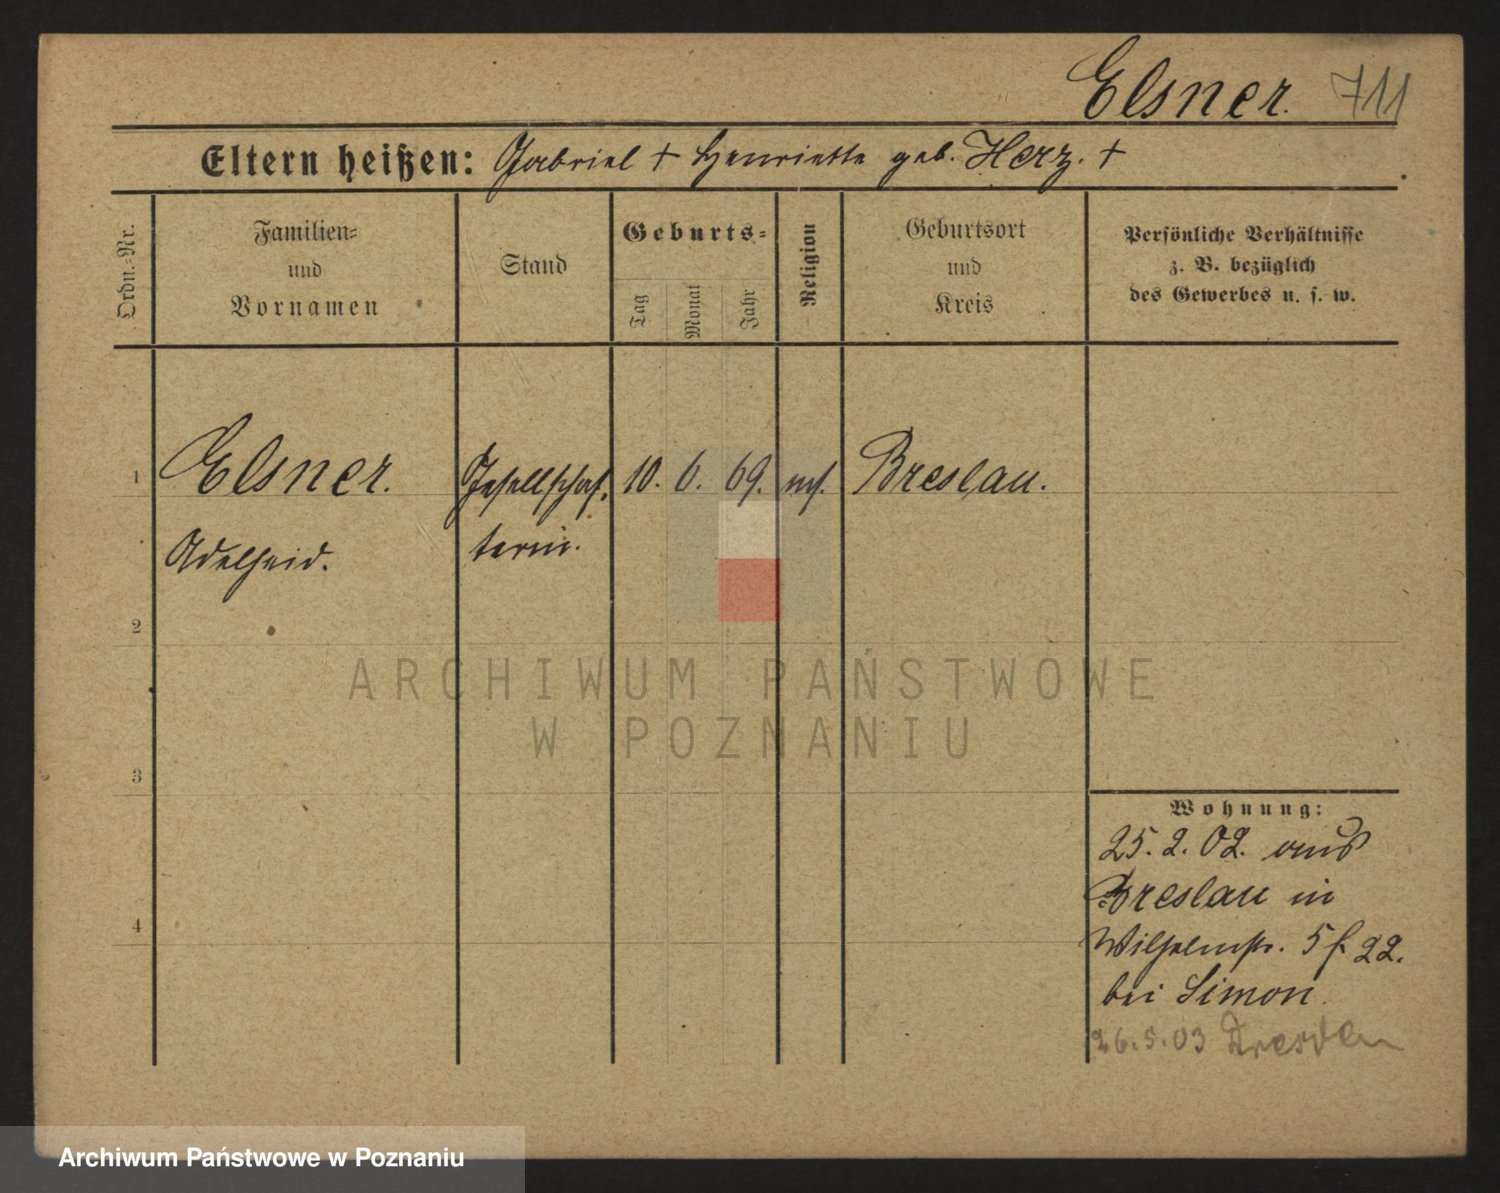 Elsner. 711
Eltern heißen: Gabriel + Henriette geb. Herz. +
Ordn.-Nr.
Familien-
und
Vornamen
Stand
Geburts-
Tag
Monat
Jahr
Religion
Geburtsort
und
Kreis
Persönliche Verhältnisse
z. B. bezüglich
des Gewerbes u. s. w.
1 Elsner. Gesellschaf- 10. 6. 69. mos. Breslau.
Adelheid. terin.
2
3
4
ARCHIWUM PAŃSTWOWE
W POZNANIU
Wohnung:
25. 2. 02. aus
Breslau in
Wilhelmstr. 5 f. 22.
bei Simon.
26.5.03 Dresden
Archiwum Państwowe w Poznaniu